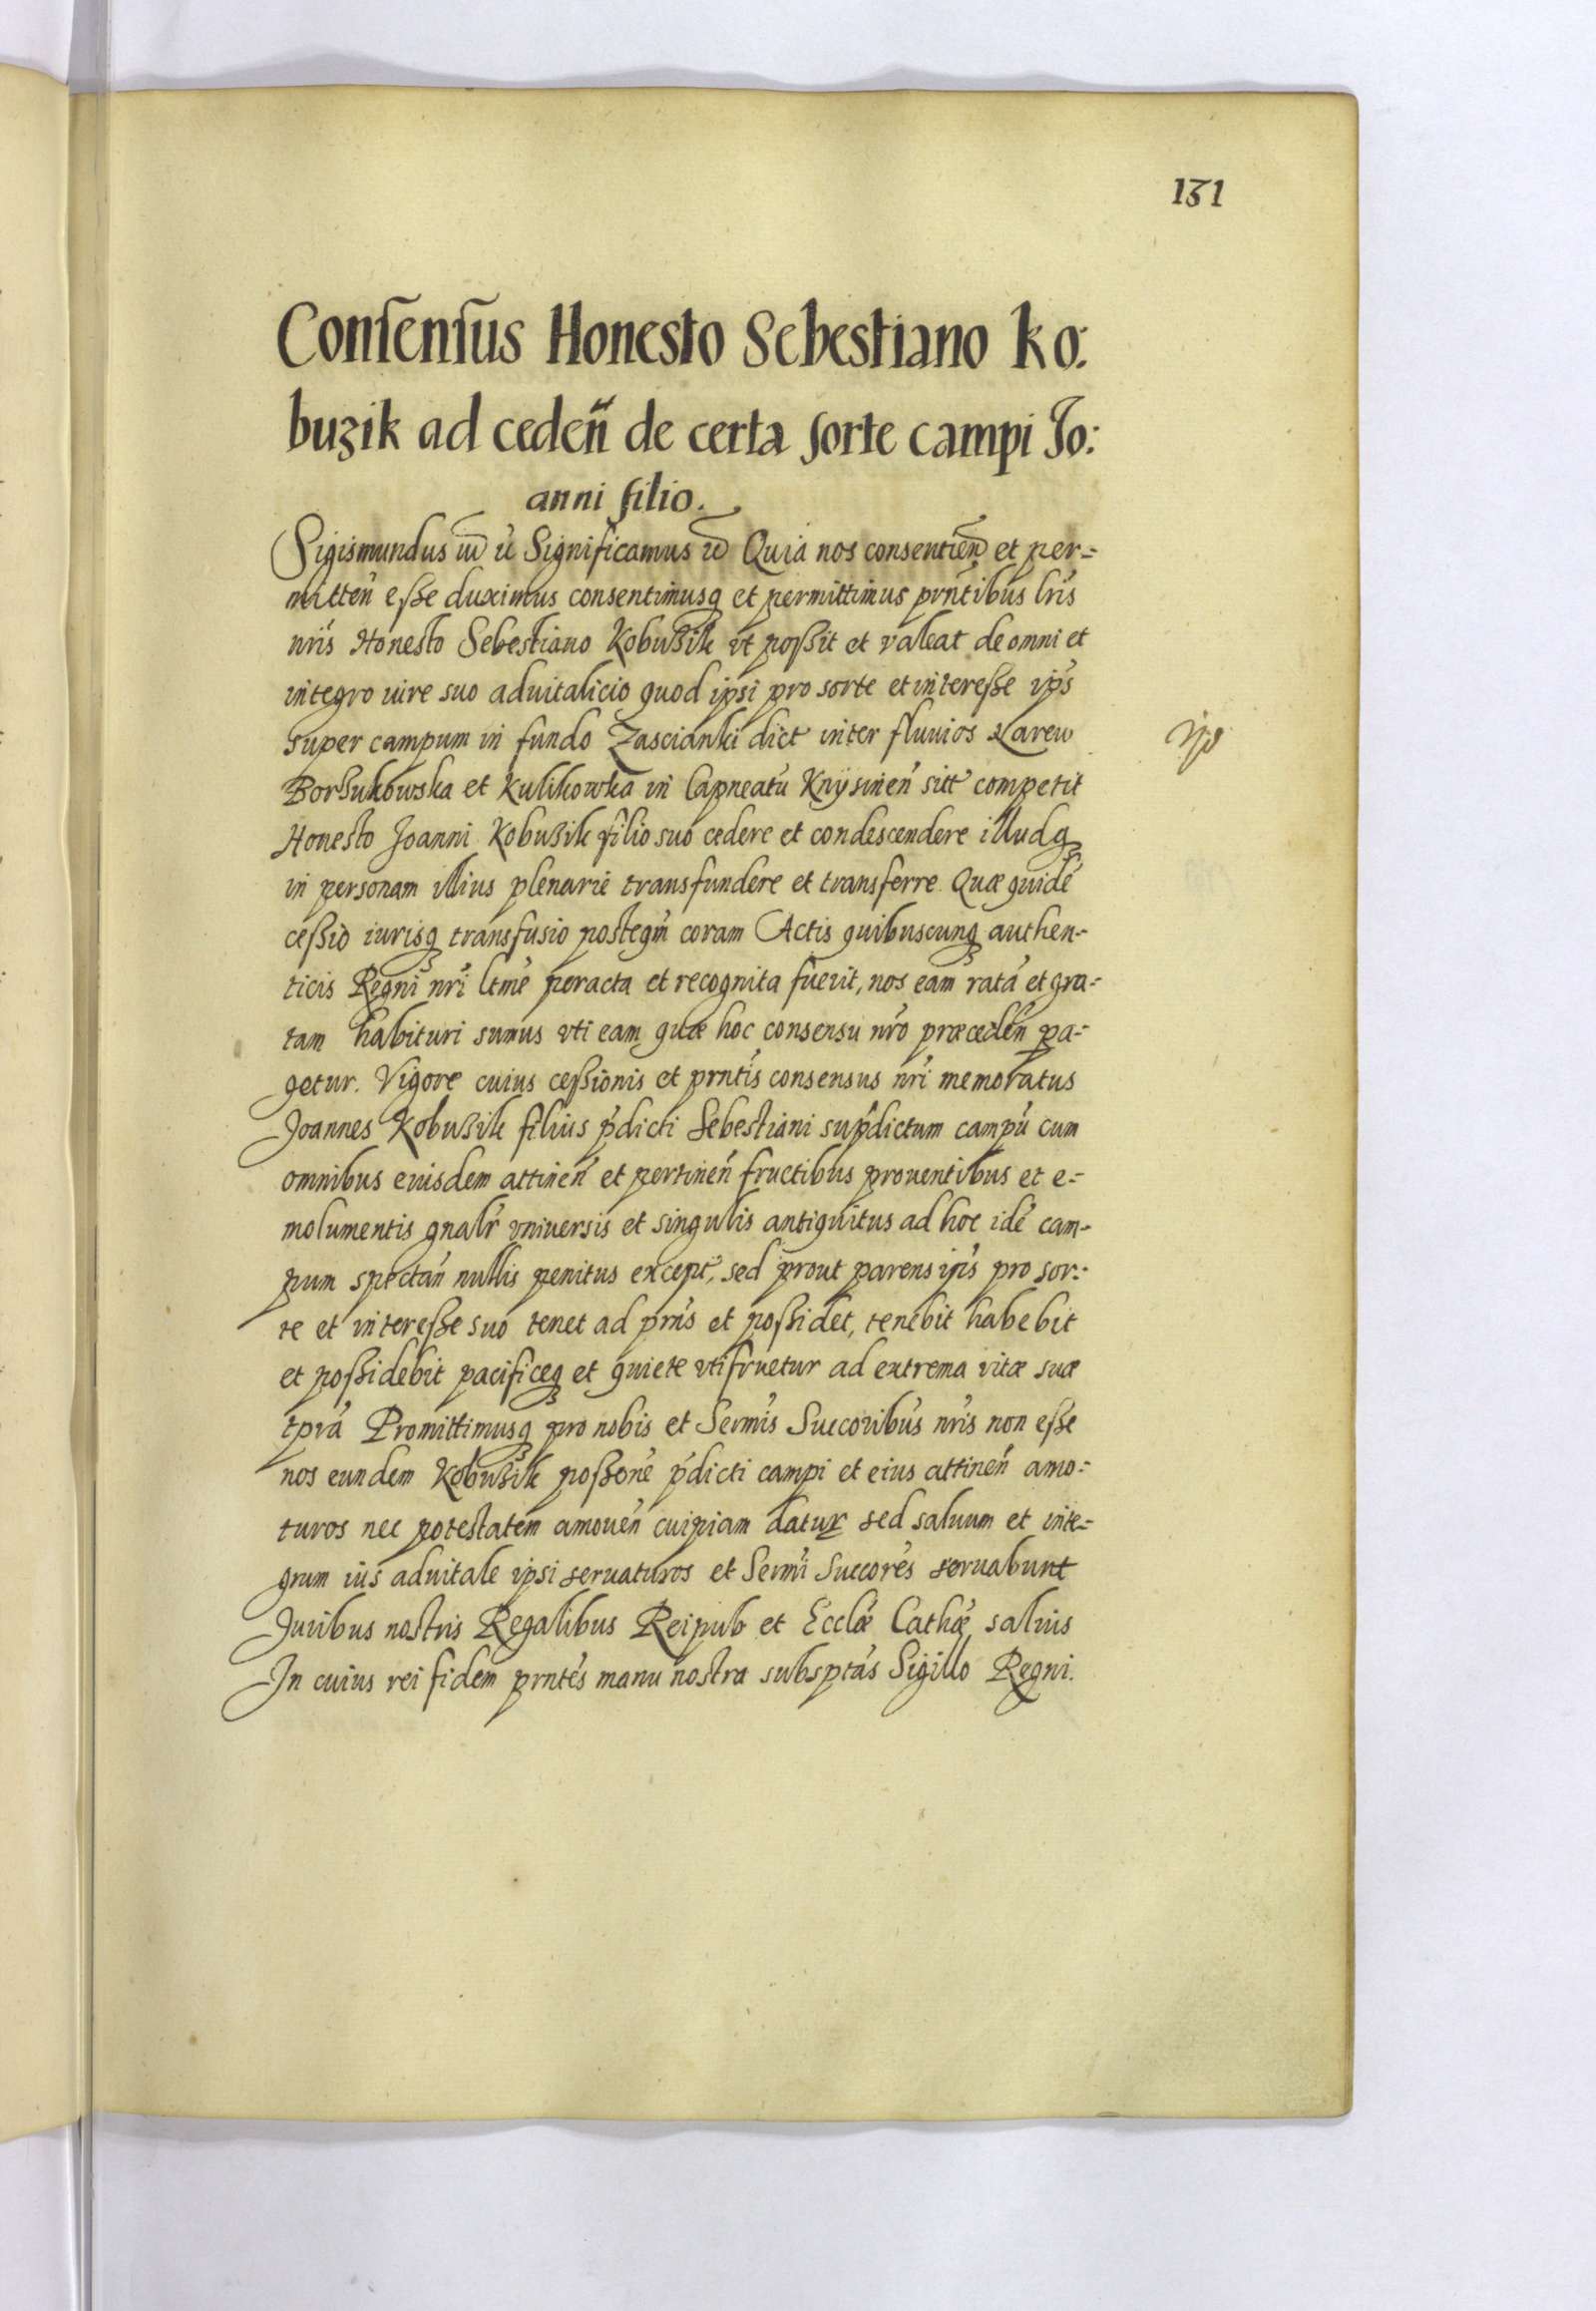 151
Consensus Honesto Sebestiano Ko:
buzik ad ceden̄ de certa sorte campi Jo:
anni filio.
Sigismundus Significamus Quia nos consentien et per-
mitten esse duximus consentimusq et permittimus prntibus lris
nris Honesto Sebestiano Kobuzik vt possit et valeat de omni et
integro iure suo aduitalicio quod ipsi pro sorte et interesse ips
super campum in fundo Zascianki dict inter fluuios Narew
Borsukowska et Kulikowka in Capneatu Knÿsinen sitt competit
Honesto Joanni Kobuzik filio suo cedere et condescendere illudq
in personam illius plenarie transfundere et transferre. Quæ quidé
cessio iurisq transfusio posteqm coram Actis quibuscunq authen-
ticis Regni nri ltme peracta et recognita fuerit, nos eam ratá et gra-
tam habituri sumus vti eam quæ hoc consensu nro præceden pa-
getur. Vigore cuius cessionis et prntis consensus nri memoratus
Joannes Kobuzik filius pdicti Sebestiani supdictum campú cum
omnibus eiusdem attinen et pertinen fructibus prouentibus et e-
molumentis gnalr vniuersis et singulis antiquitus ad hoc idé cam-
pum spectan nullis penitus except, sed prout parens ips pro sor-
te et interesse suo tenet ad prns et possidet, tenebit habebit
et possidebit pacificeq et quiete vtifruetur ad extrema vitæ suæ
tpra Promittimusq pro nobis et Sermis Succoribus nris non esse
nos eundem Kobuzik possone pdicti campi et eius attinen amo-
turos nec potestatem amouen cuipiam datur sed saluum et inte-
grum ius aduitale ipsi seruaturos et Sermi Succores seruabunt
Juribus nostris Regalibus Reipub et Ecclæ Cathæ saluis
In cuius rei fidem prntes manu nostra subsptas Sigillo Regni.